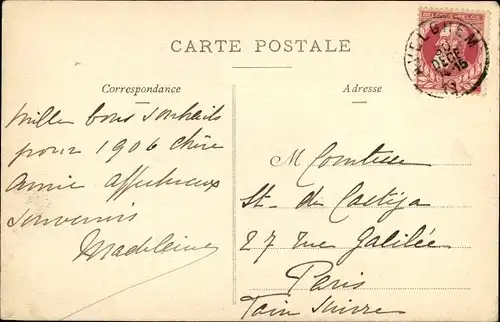 CARTE POSTALE
Correspondance
Adresse
Mille bons souhaits
pour 1906 chère
amie affectueux
souvenirs
Madeleine
M Comtesse
St. de Castéja
27 rue Galilée
Paris
Faire suivre
AVELGHEM
30
DECE